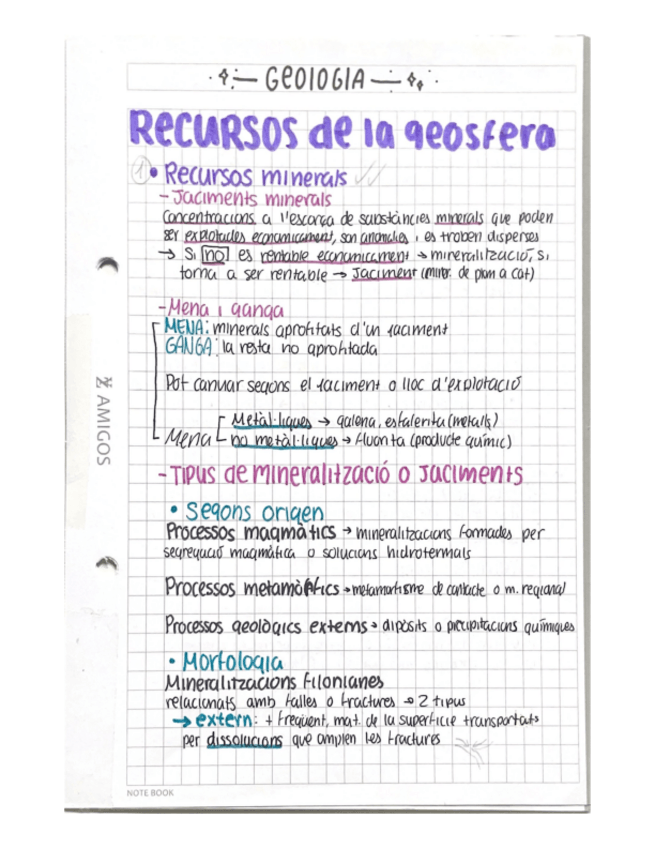 GEOlOGIA
RECURSOS de la geosfera
1 • Recursos minerals
- Jaciments minerals
Concentracions a l'escorça de substàncies minerals que poden
ser explotades econòmicament, son anomalies i es troben disperses
→ Si no es rentable econòmicament → mineralització, si
torna a ser rentable → Jaciment (miner. de plom a cat)
- Mena i ganga
MENA: minerals aprofitats d'un jaciment
GANGA: la resta no aprofitada
Pot canviar segons el jaciment o lloc d'explotació
Metàl·liques → galena, esfalerita (metalls)
Mena no metàl·liques → fluorita (producte químic)
- Tipus de mineralització o Jaciments
• Segons origen
Processos magmàtics → mineralitzacions formades per
segregació magmàtica o solucions hidrotermals
Processos metamòrfics → metamorfisme de contacte o m. regional
Processos geològics externs → dipòsits o precipitacions químiques
• Morfologia
Mineralitzacions filonianes
relacionats amb falles o fractures → 2 tipus
→ extern: + freqüent, mat. de la superfície transportats
per dissolucions que omplen les fractures
AMIGOS
NOTE BOOK